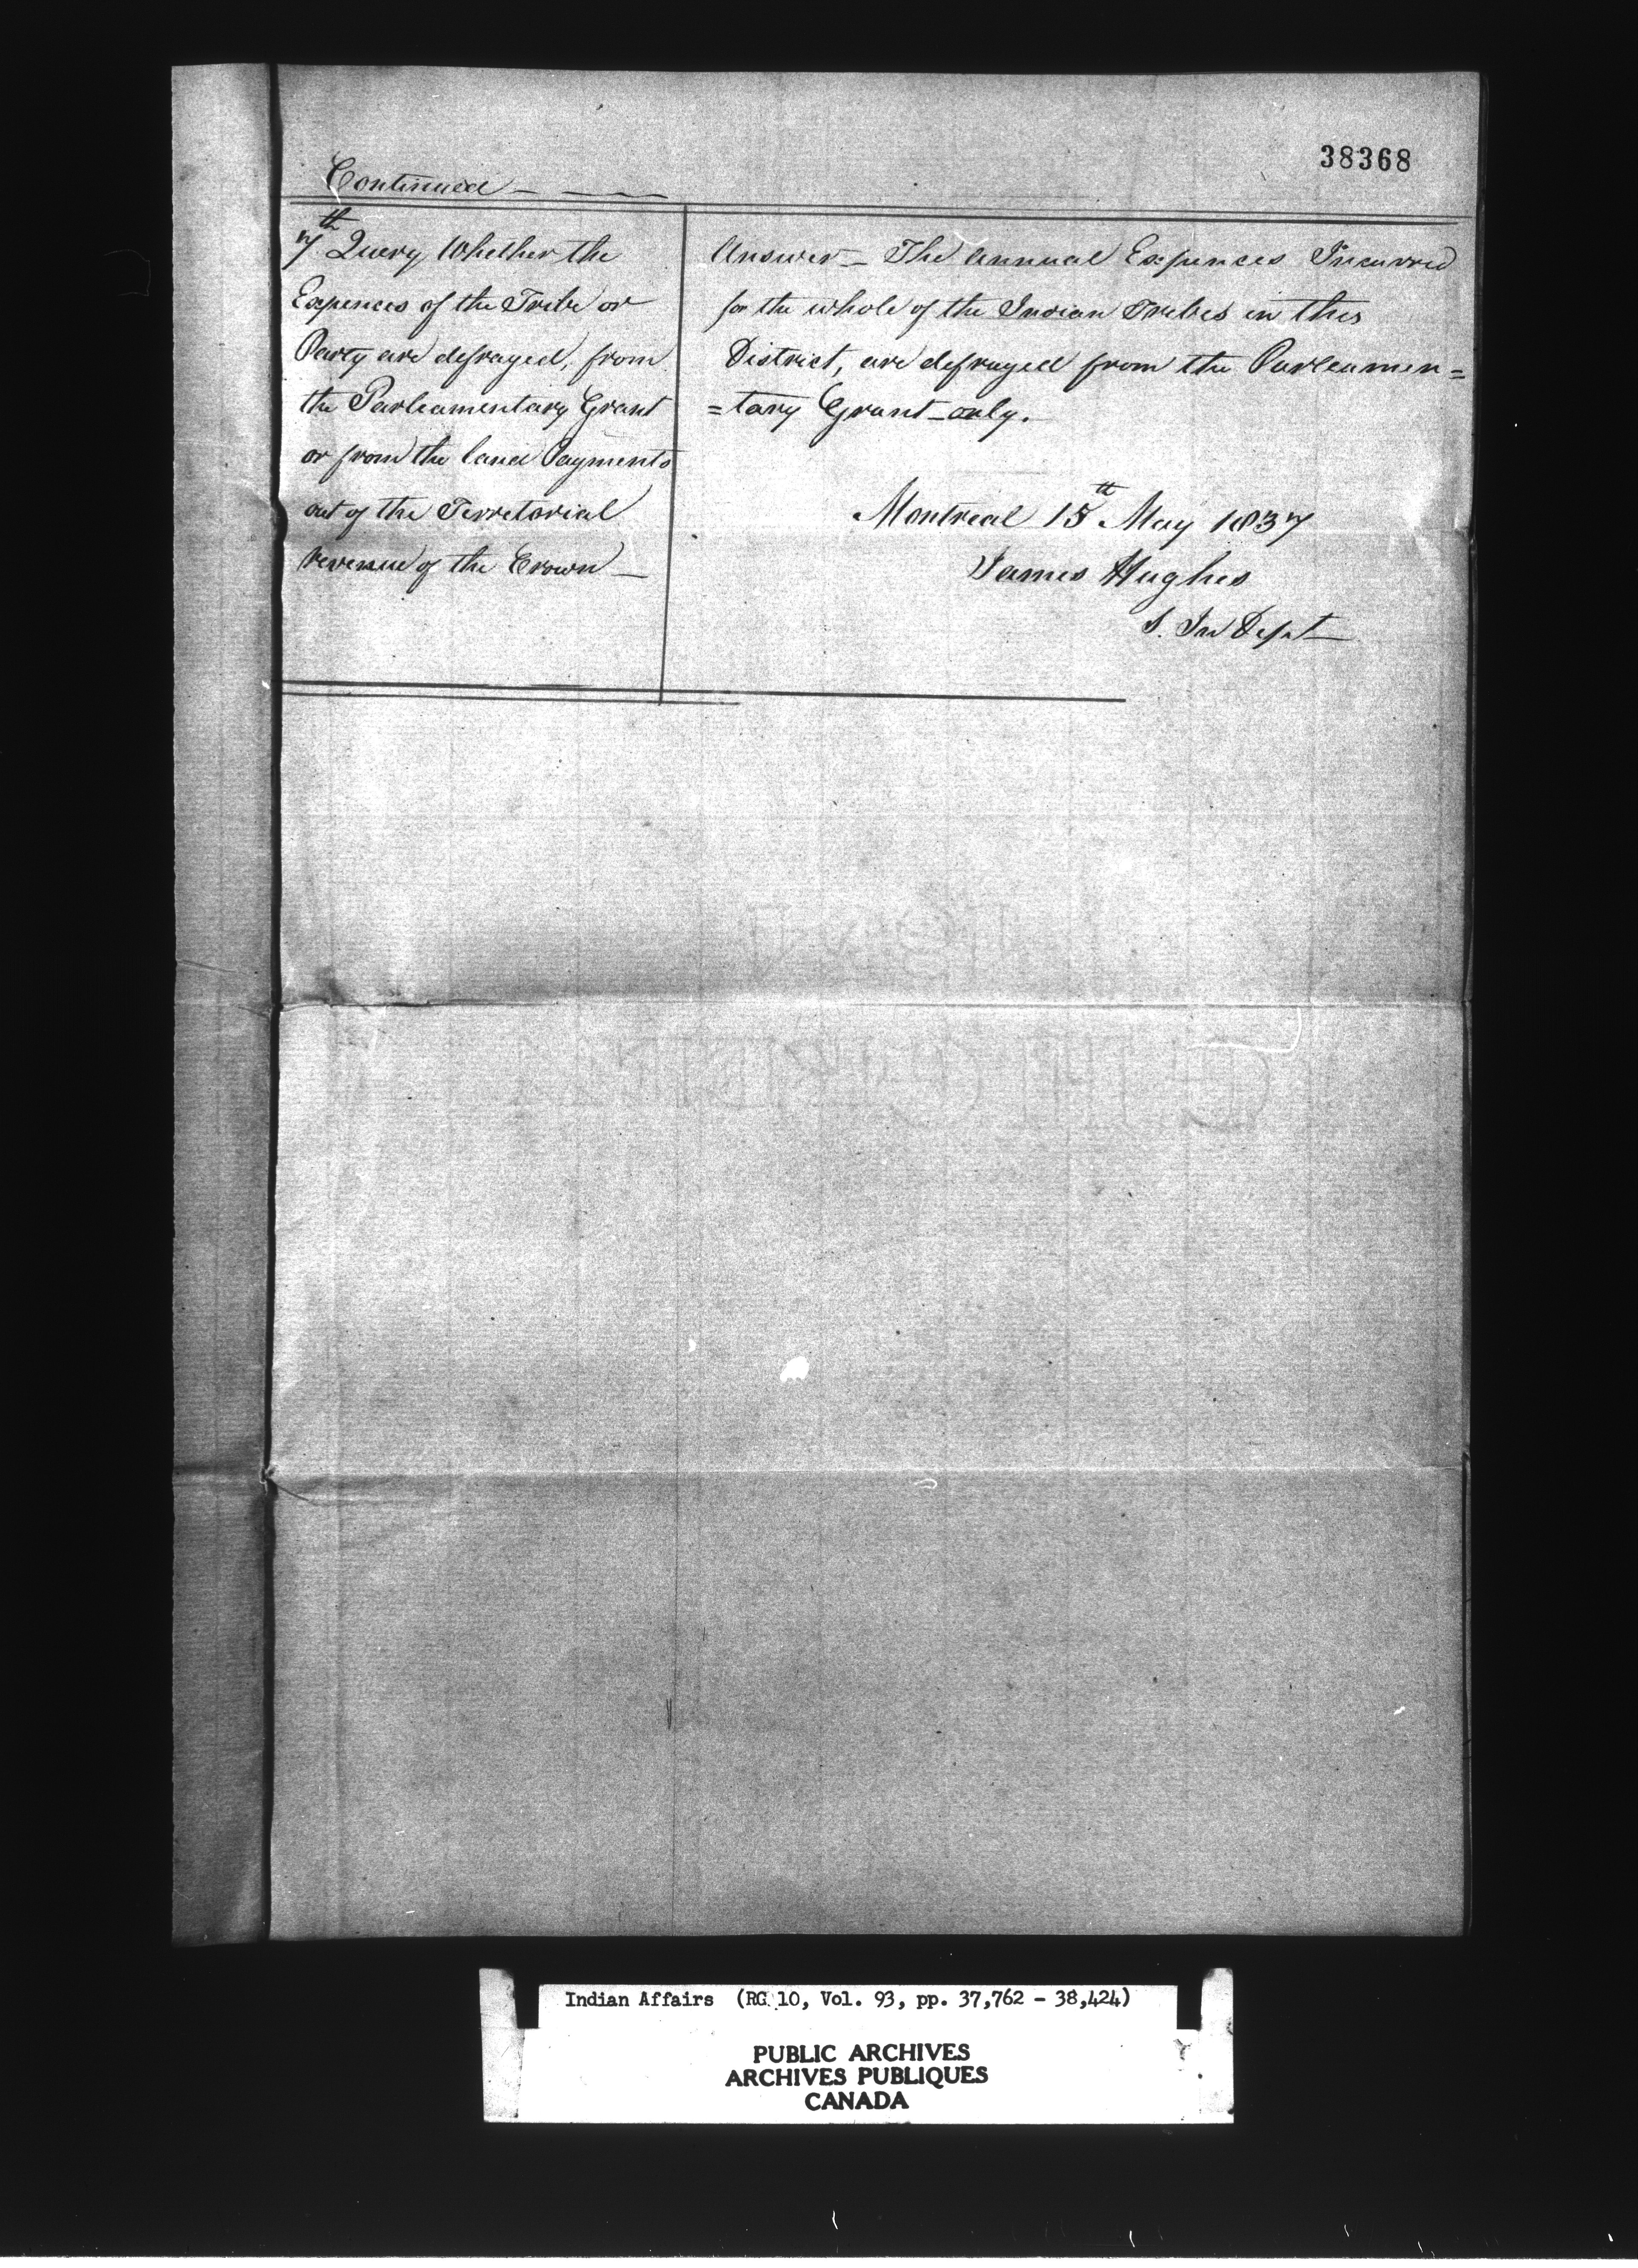 38368
Continued
7th Query Whether the
Expences of the Tribe or
Party are defrayed, from
the Parleamentary Grant
or from the land Payments
out of the Territorial
revenue of the Crown
Answer - The annual Expences Incurred
for the whole of the Indian Tribes in this
District, are defrayed from the Parleamen=
=tary Grant only.
Montreal 15th May 1837
James Hughes
S. In Dept
Indian Affairs (RG 10, Vol. 93, pp. 37,762 - 38,424)
PUBLIC ARCHIVES
ARCHIVES PUBLIQUES
CANADA